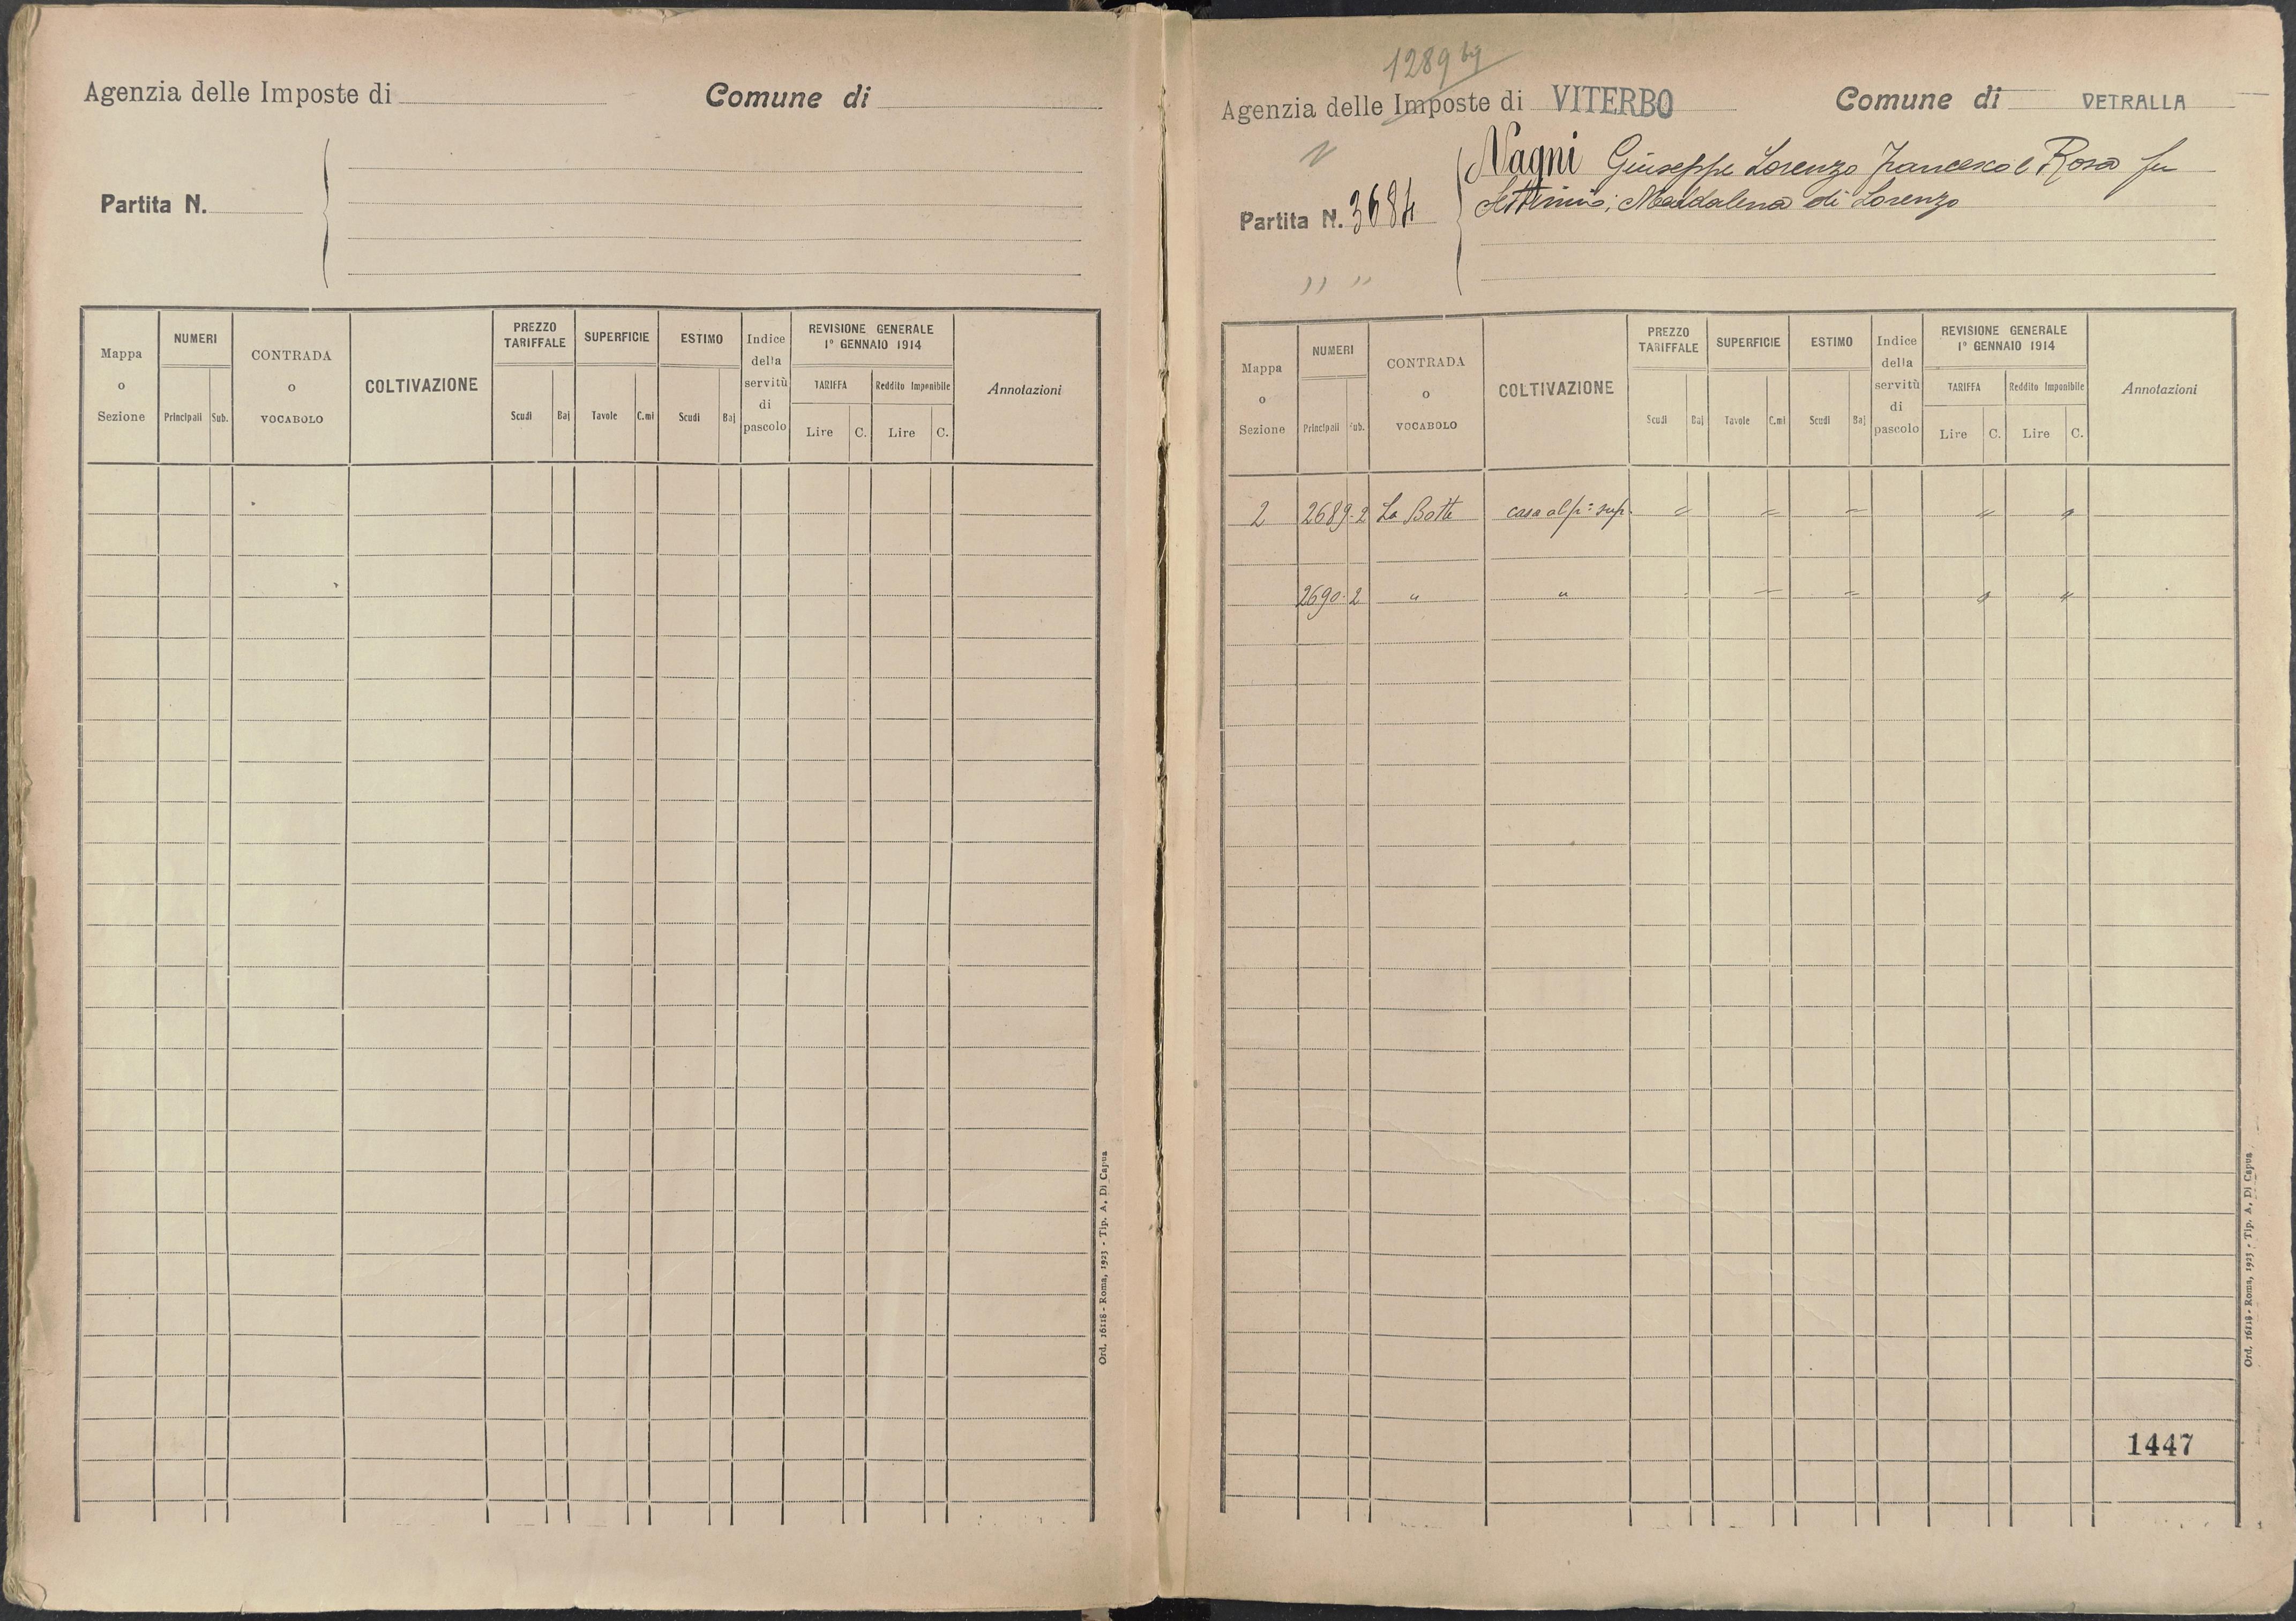 Agenzia delle Imposte di Comune di
Partita N.
Mappa o Sezione NUMERI Principali Sub. CONTRADA o VOCABOLO COLTIVAZIONE PREZZO TARIFFALE Scudi Baj SUPERFICIE Tavole C.mi ESTIMO Scudi Baj Indice della servitù di pascolo REVISIONE GENERALE 1º GENNAIO 1914 TARIFFA Lire C. Reddito Imponibile Lire C. Annotazioni
Ord. 16118 - Roma, 1923 - Tip. A. Di Capua
1289
Agenzia delle Imposte di VITERBO Comune di VETRALLA
Nagni Giuseppe Lorenzo Francesco e Rosa fu
Partita N. 3684 Settimio; Maddalena di Lorenzo
" "
Mappa o Sezione NUMERI Principali Sub. CONTRADA o VOCABOLO COLTIVAZIONE PREZZO TARIFFALE Scudi Baj SUPERFICIE Tavole C.mi ESTIMO Scudi Baj Indice della servitù di pascolo REVISIONE GENERALE 1º GENNAIO 1914 TARIFFA Lire C. Reddito Imponibile Lire C. Annotazioni
2 2689.2 La Botte casa al p.º sup. " " " " "
2690.2 " " " " " "
1447
Ord. 16118 - Roma, 1923 - Tip. A. Di Capua